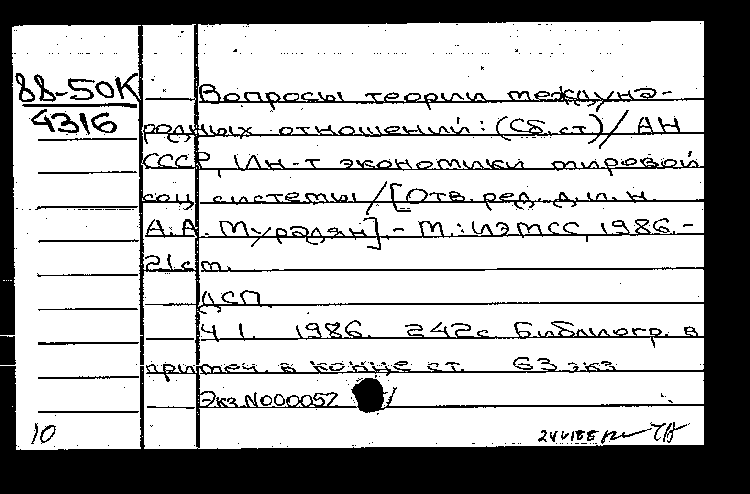 88-50К
4316
Вопросы теории междуна-
родных отношений: (Сб. ст.) / АН
СССР, Ин-т экономики мировой
соц. системы / [Отв. ред. д. и. н.
А. А. Мурадян]. - М.: ИЭМСС, 1986. -
21 см.
ДСП
Ч 1. 1986. 242с Библиогр. в
примеч. в конце ст. 63 экз
Экз. N000052
10